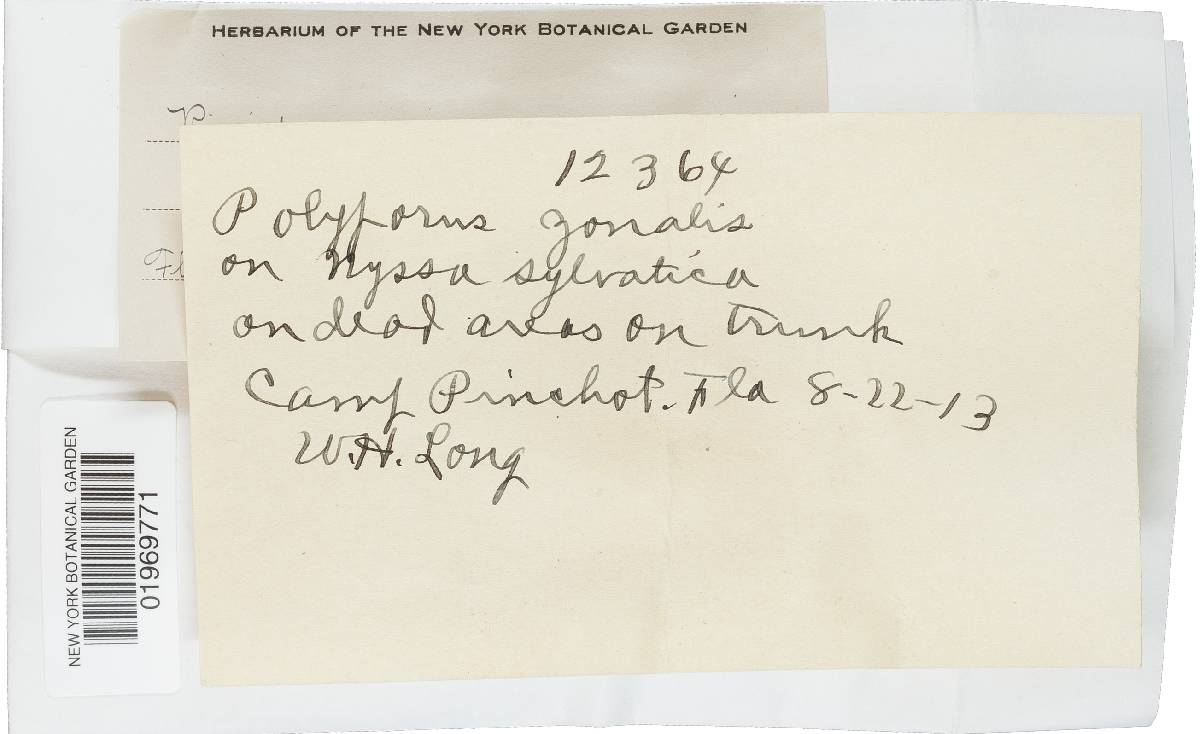 HERBARIUM OF THE NEW YORK BOTANICAL GARDEN
12364
Polyporus zonalis
on Nyssa sylvatica
on dead areas on trunk
Camp Pinchot. Fla 8-22-13
W.H. Long
NEW YORK BOTANICAL GARDEN
01969771